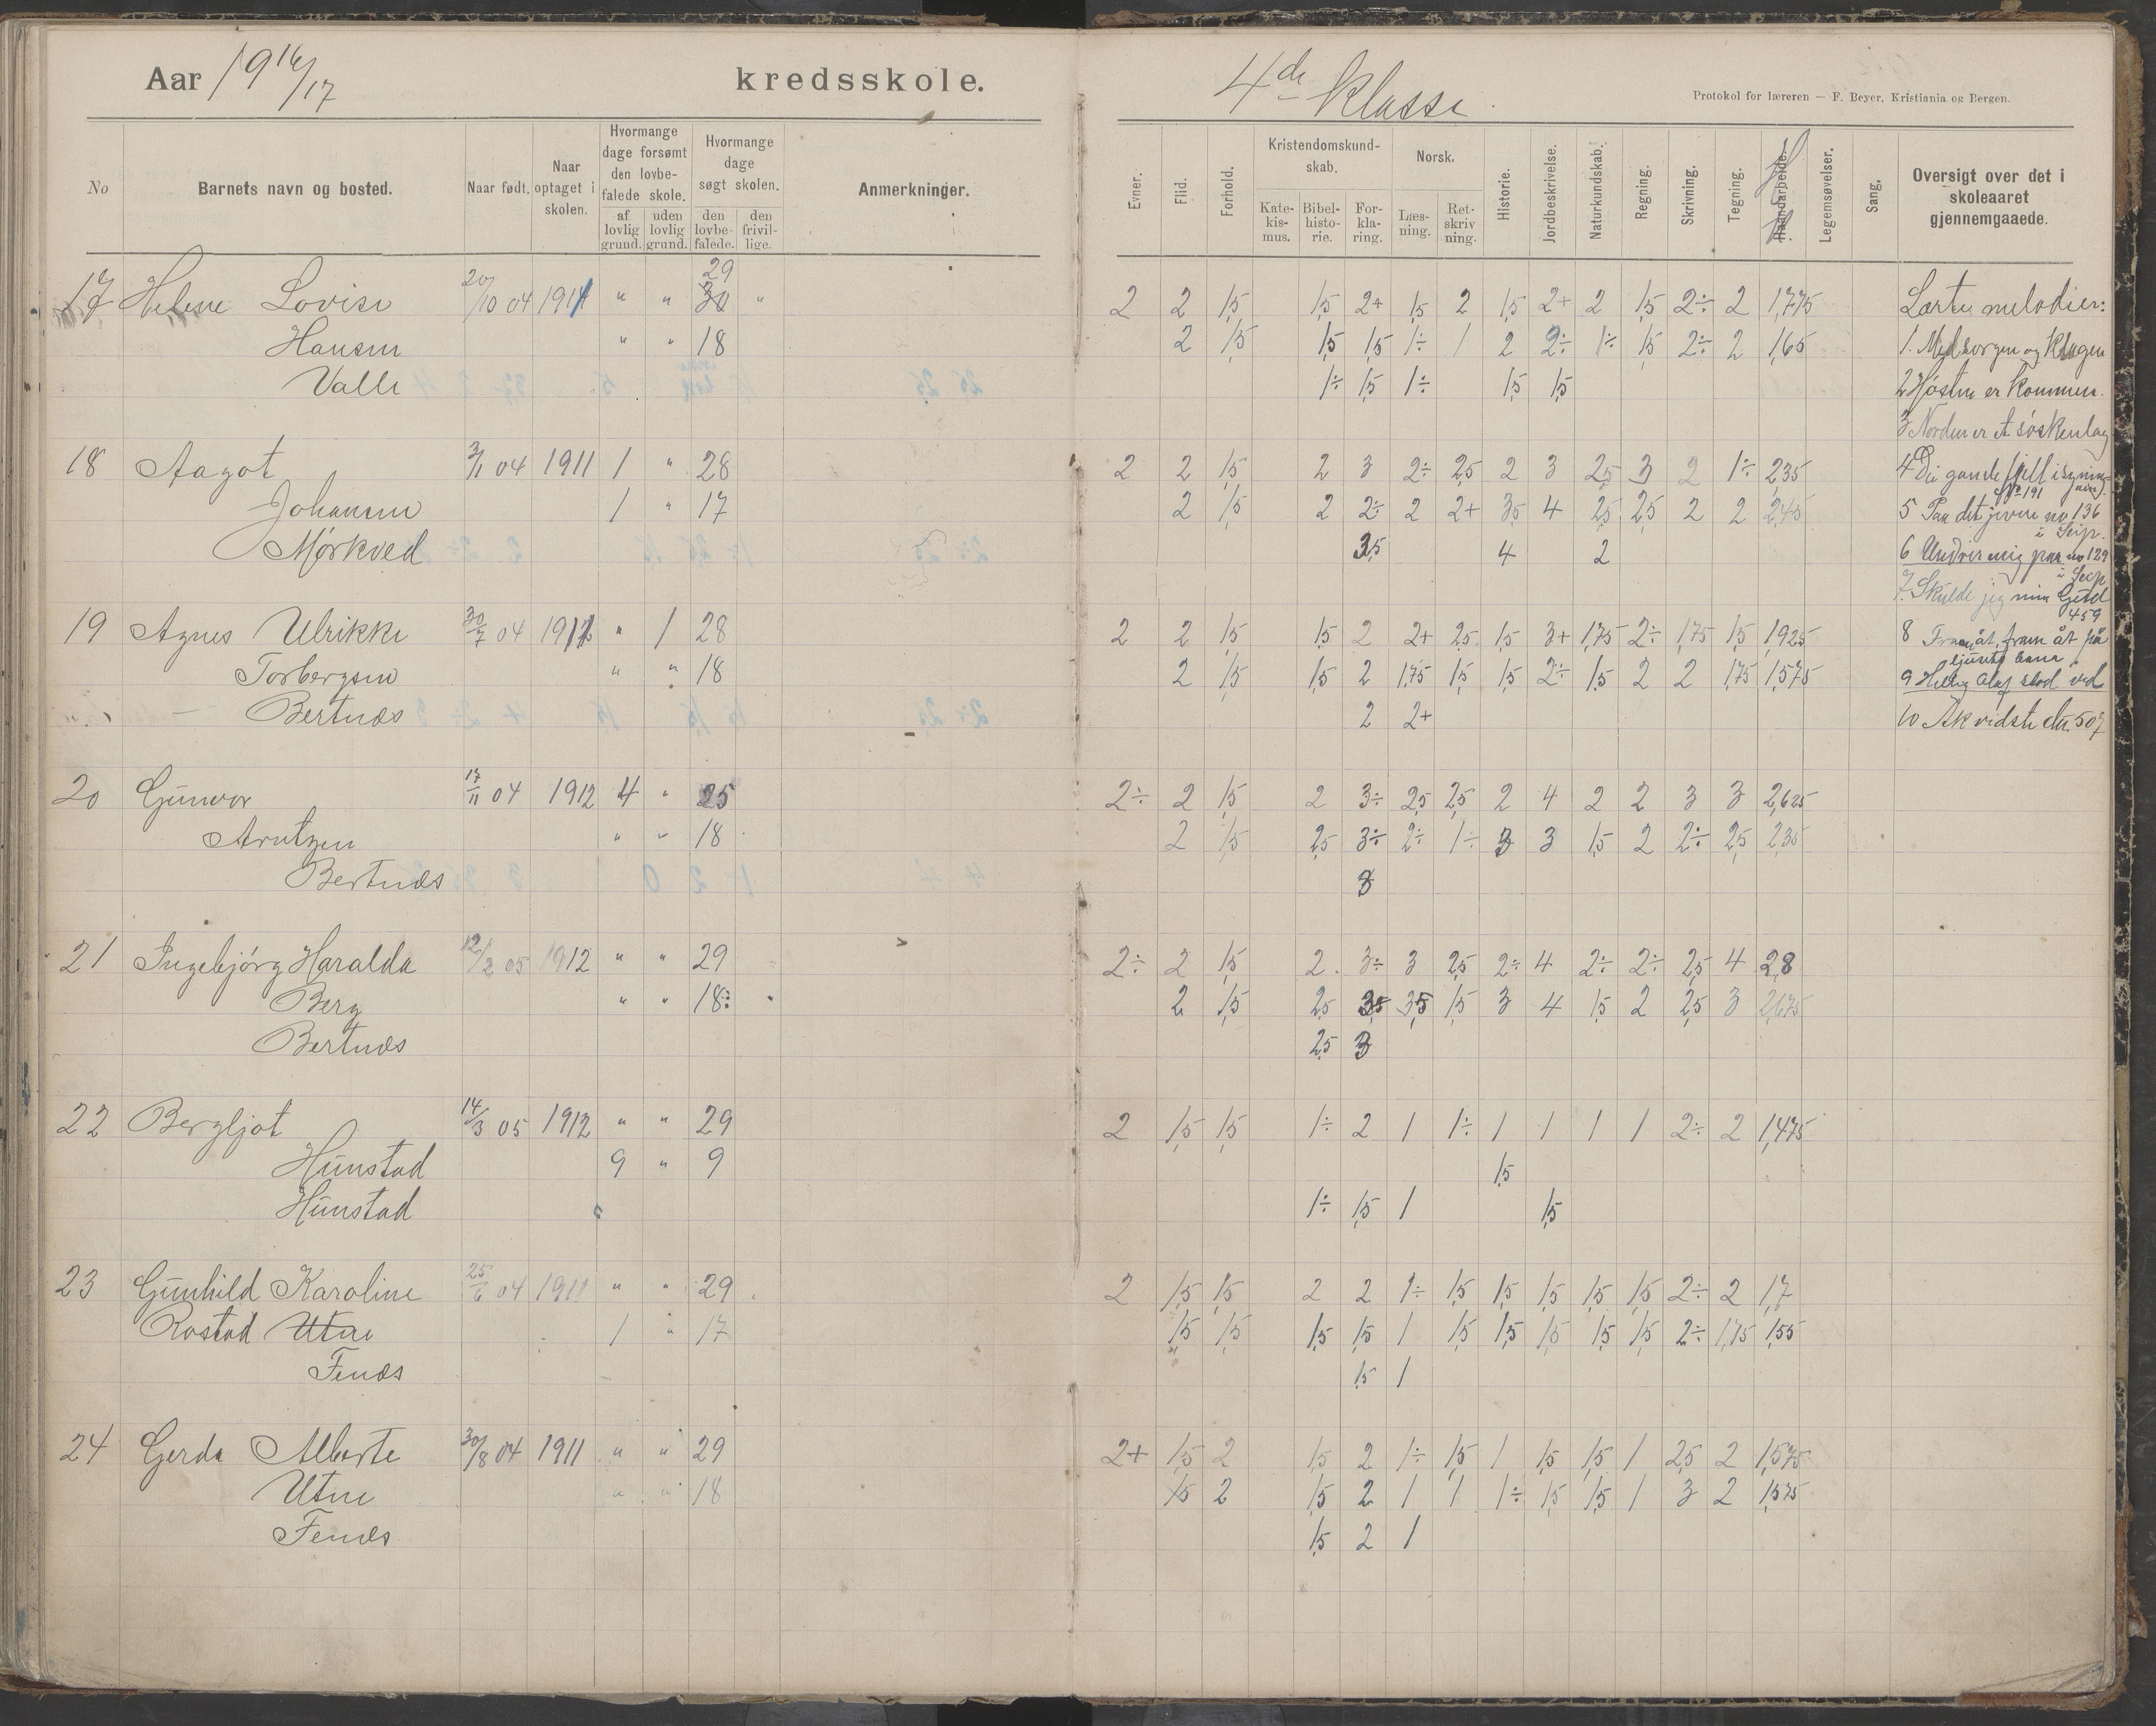 Aar 1916/17 kredsskole.
4de Klasse
Protokol for læreren — F. Beyer, Kristiania og Bergen.
No Barnets navn og bosted. Naar født. Naar optaget i skolen. Hvormange dage forsømt den lovbefalede skole. af lovlig grund. uden lovlig grund. Hvormange dage søgt skolen. den lovbefalede. den frivillige. Anmerkninger.
Evner. Flid. Forhold. Kristendomskundskab. Katekismus. Bibelhistorie. Forklaring. Norsk. Læsning. Retskrivning. Historie. Jordbeskrivelse. Naturkundskab. Regning. Skrivning. Tegning. Haandarbeide. Legemsøvelser. Sang. Oversigt over det i skoleaaret gjennemgaaede.
17 Helene Lovise 20/10 04 1911 " " 29 30 " 2 2 1,5 1,5 2+ 1,5 2 1,5 2+ 2 1,5 2÷ 2 1,775 Lærte melodier:
Hansen " " 18 2 1,5 1,5 1,5 1÷ 1 2 2÷ 1÷ 1,5 2÷ 2 1,65 1. Med sorgen og klagen
Valle 1÷ 1,5 1÷ 1,5 1,5 2 Høsten er kommen.
3 Norden er et søskenlag
18 Aagot 3/1 04 1911 1 " 28 2 2 1,5 2 3 2÷ 2,5 2 3 2,5 3 2 1÷ 2,35 4 Dei gamle fjell i syning
Johansen 1 " 17 2 1,5 2 2÷ 2 2+ 3,5 4 2,5 2,5 2 2 2,45 5 Paa det jevne no 136
Mørkved 3,5 4 2 6 Undvis mig paa no 129
7. Skulde jeg min Gud 459
19 Agnes Ulrikke 30/7 04 1912 " 1 28 2 2 1,5 1,5 2 2+ 2,5 1,5 3+ 1,75 2÷ 1,75 1,5 1,925 8 Framåt, fram åt på
ljusets bana
Torbergsen " " 18 2 1,5 1,5 2 1,75 1,5 1,5 2÷ 1,5 2 2 1,75 1,575 9 Hellig Olaf stod ved
Bertnæs 2 2+ 10 Ak vidste du. 507
20 Gunvor 17/11 04 1912 4 " 25 2÷ 2 1,5 2 3÷ 2,5 2,5 2 4 2 2 3 3 2,625
Arntzen " " 18 2 1,5 2,5 3÷ 2÷ 1÷ 3 3 1,5 2 2÷ 2,5 2,35
Bertnæs 3
21 Ingebjørg Haralda 12/2 05 1912 " " 29 2÷ 2 1,5 2 3÷ 3 2,5 2÷ 4 2÷ 2÷ 2,5 4 2,8
Berg " " 18 2 1,5 2,5 3,5 3,5 1,5 3 4 1,5 2 2,5 3 2,675
Bertnæs 2,5 3
22 Bergljot 14/3 05 1912 " " 29 2 1,5 1,5 1÷ 2 1 1÷ 1 1 1 1 2÷ 2 1,475
Hunstad 9 " 9 1,5
Hunstad 1÷ 1,5 1 1,5
23 Gunhild Karoline 25/6 04 1911 " " 29 2 1,5 1,5 2 2 1÷ 1,5 1,5 1,5 1,5 1,5 2÷ 2 1,7
Rostad Utne 1 " 17 1,5 1,5 1,5 1,5 1 1,5 1,5 1,5 1,5 1,5 2÷ 1,75 1,55
Fenæs 1,5 1
24 Gerda Alberte 30/8 04 1911 " " 29 2+ 1,5 2 1,5 2 1÷ 1,5 1 1,5 1,5 1 2,5 2 1,575
Utne " " 18 1,5 2 1,5 2 1 1 1÷ 1,5 1,5 1 3 2 1,575
Fenæs 1,5 2 1